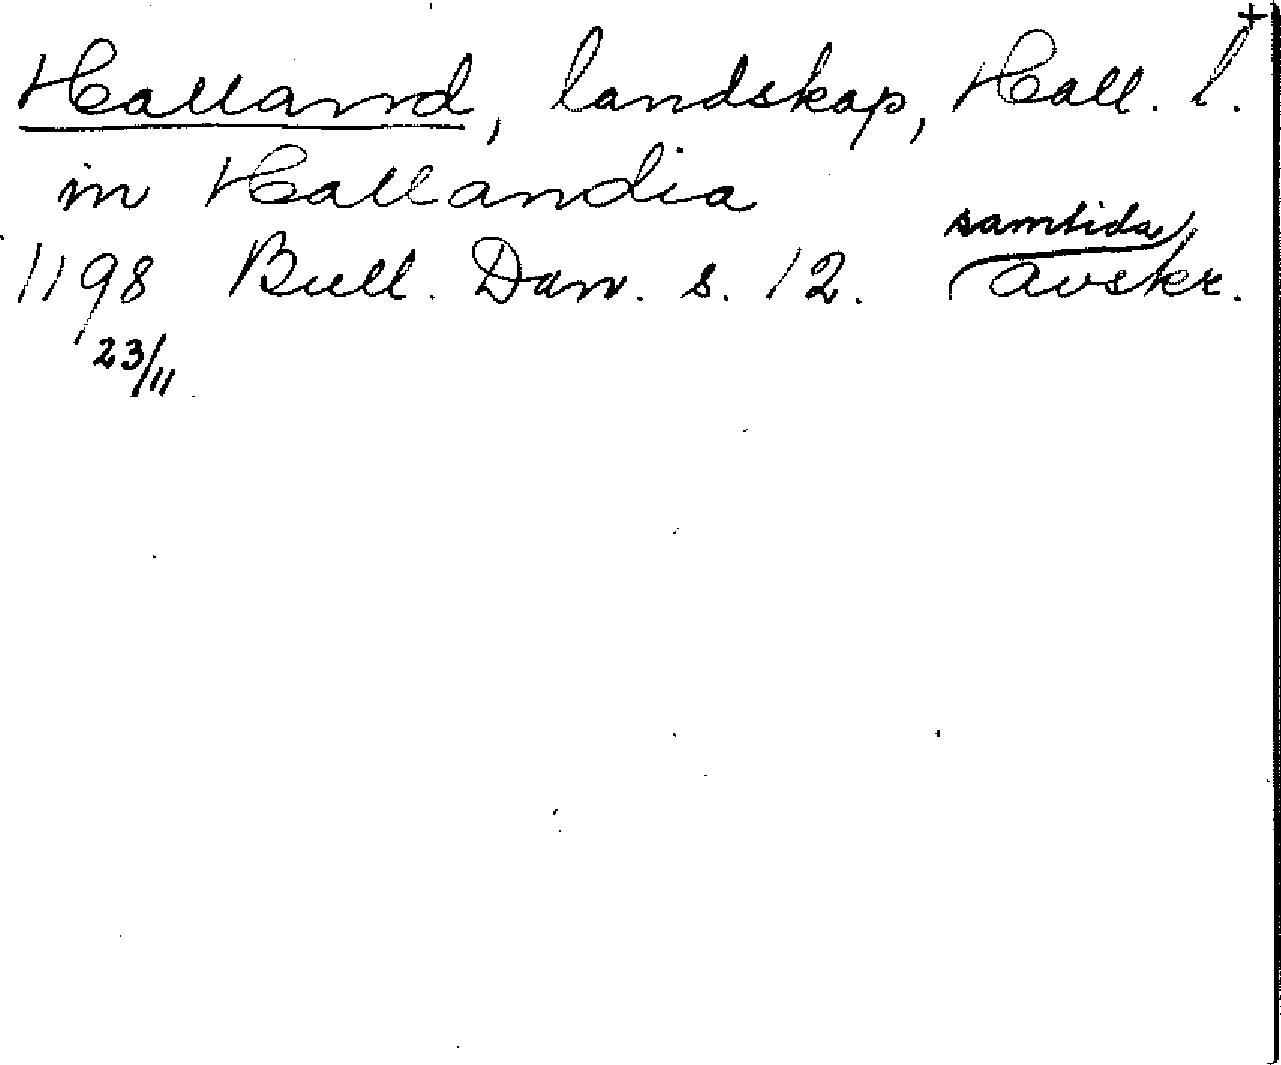 +
Halland, landskap, Hall. l.
in Hallandia
1198 Bull. Dan. s. 12. samtida avskr.
23/11